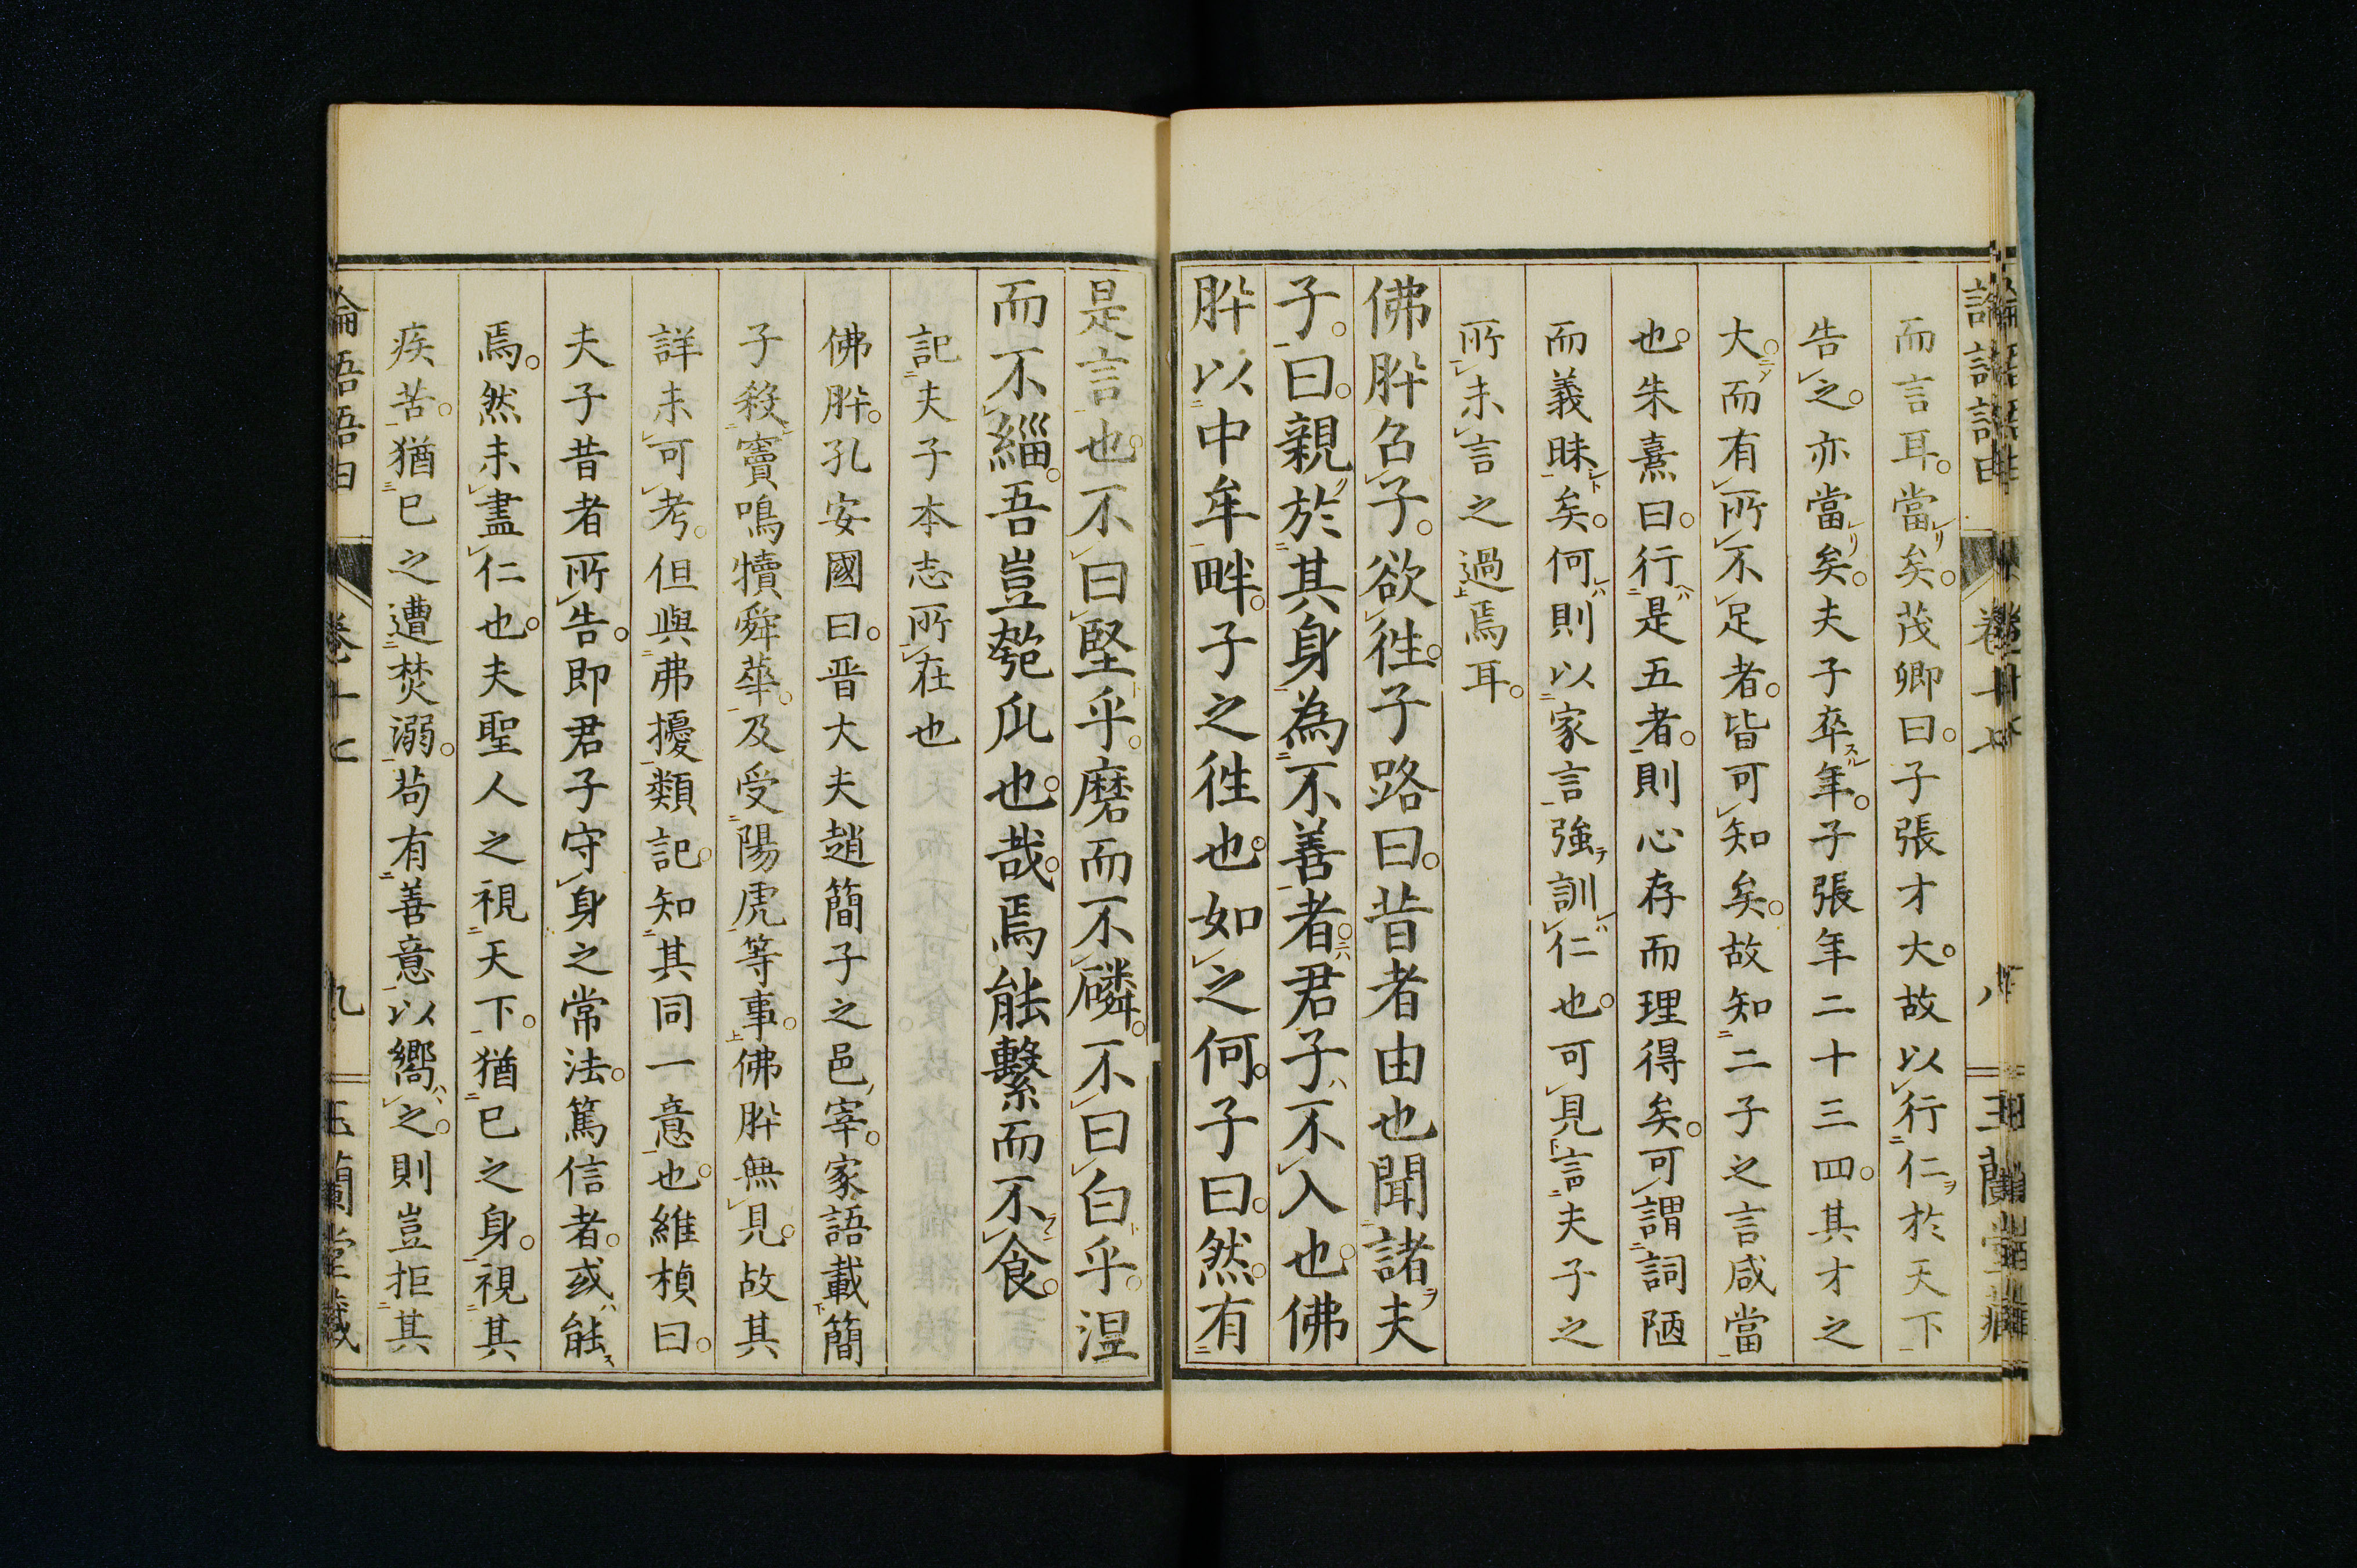 而言耳。當矣。茂卿曰。子張才大。故以行仁於天下
告之。亦當矣。夫子卒年。子張年二十三四。其才之
大。而有所不足者。皆可知矣。故知二子之言咸當
也。朱熹曰。行是五者。則心存而理得矣。可謂詞陋
而義昧矣。何則以家言強訓仁也。可見言夫子之
所未言之過焉耳。
佛肸召子。欲往。子路曰。昔者由也聞諸夫
子。曰。親於其身為不善者。君子不入也。佛
肸以中牟畔。子之往也。如之何。子曰。然。有
是言也。不曰堅乎。磨而不磷。不曰白乎。涅
而不緇。吾豈匏瓜也哉。焉能繫而不食。
記夫子本志所在也
佛肸。孔安國曰。晉大夫趙簡子之邑宰。家語載簡
子殺竇鳴犢舜華。及受陽虎等事。佛肸無見。故其
詳未可考。但與弗擾類記。知其同一意也。維楨曰。
夫子昔者所告。即君子守身之常法。篤信者。或能
焉。然未盡仁也。夫聖人之視天下。猶已之身。視其
疾苦。猶已之遭焚溺。苟有善意以嚮之。則豈拒其
論語語由 卷十七 九 玉蘭堂藏